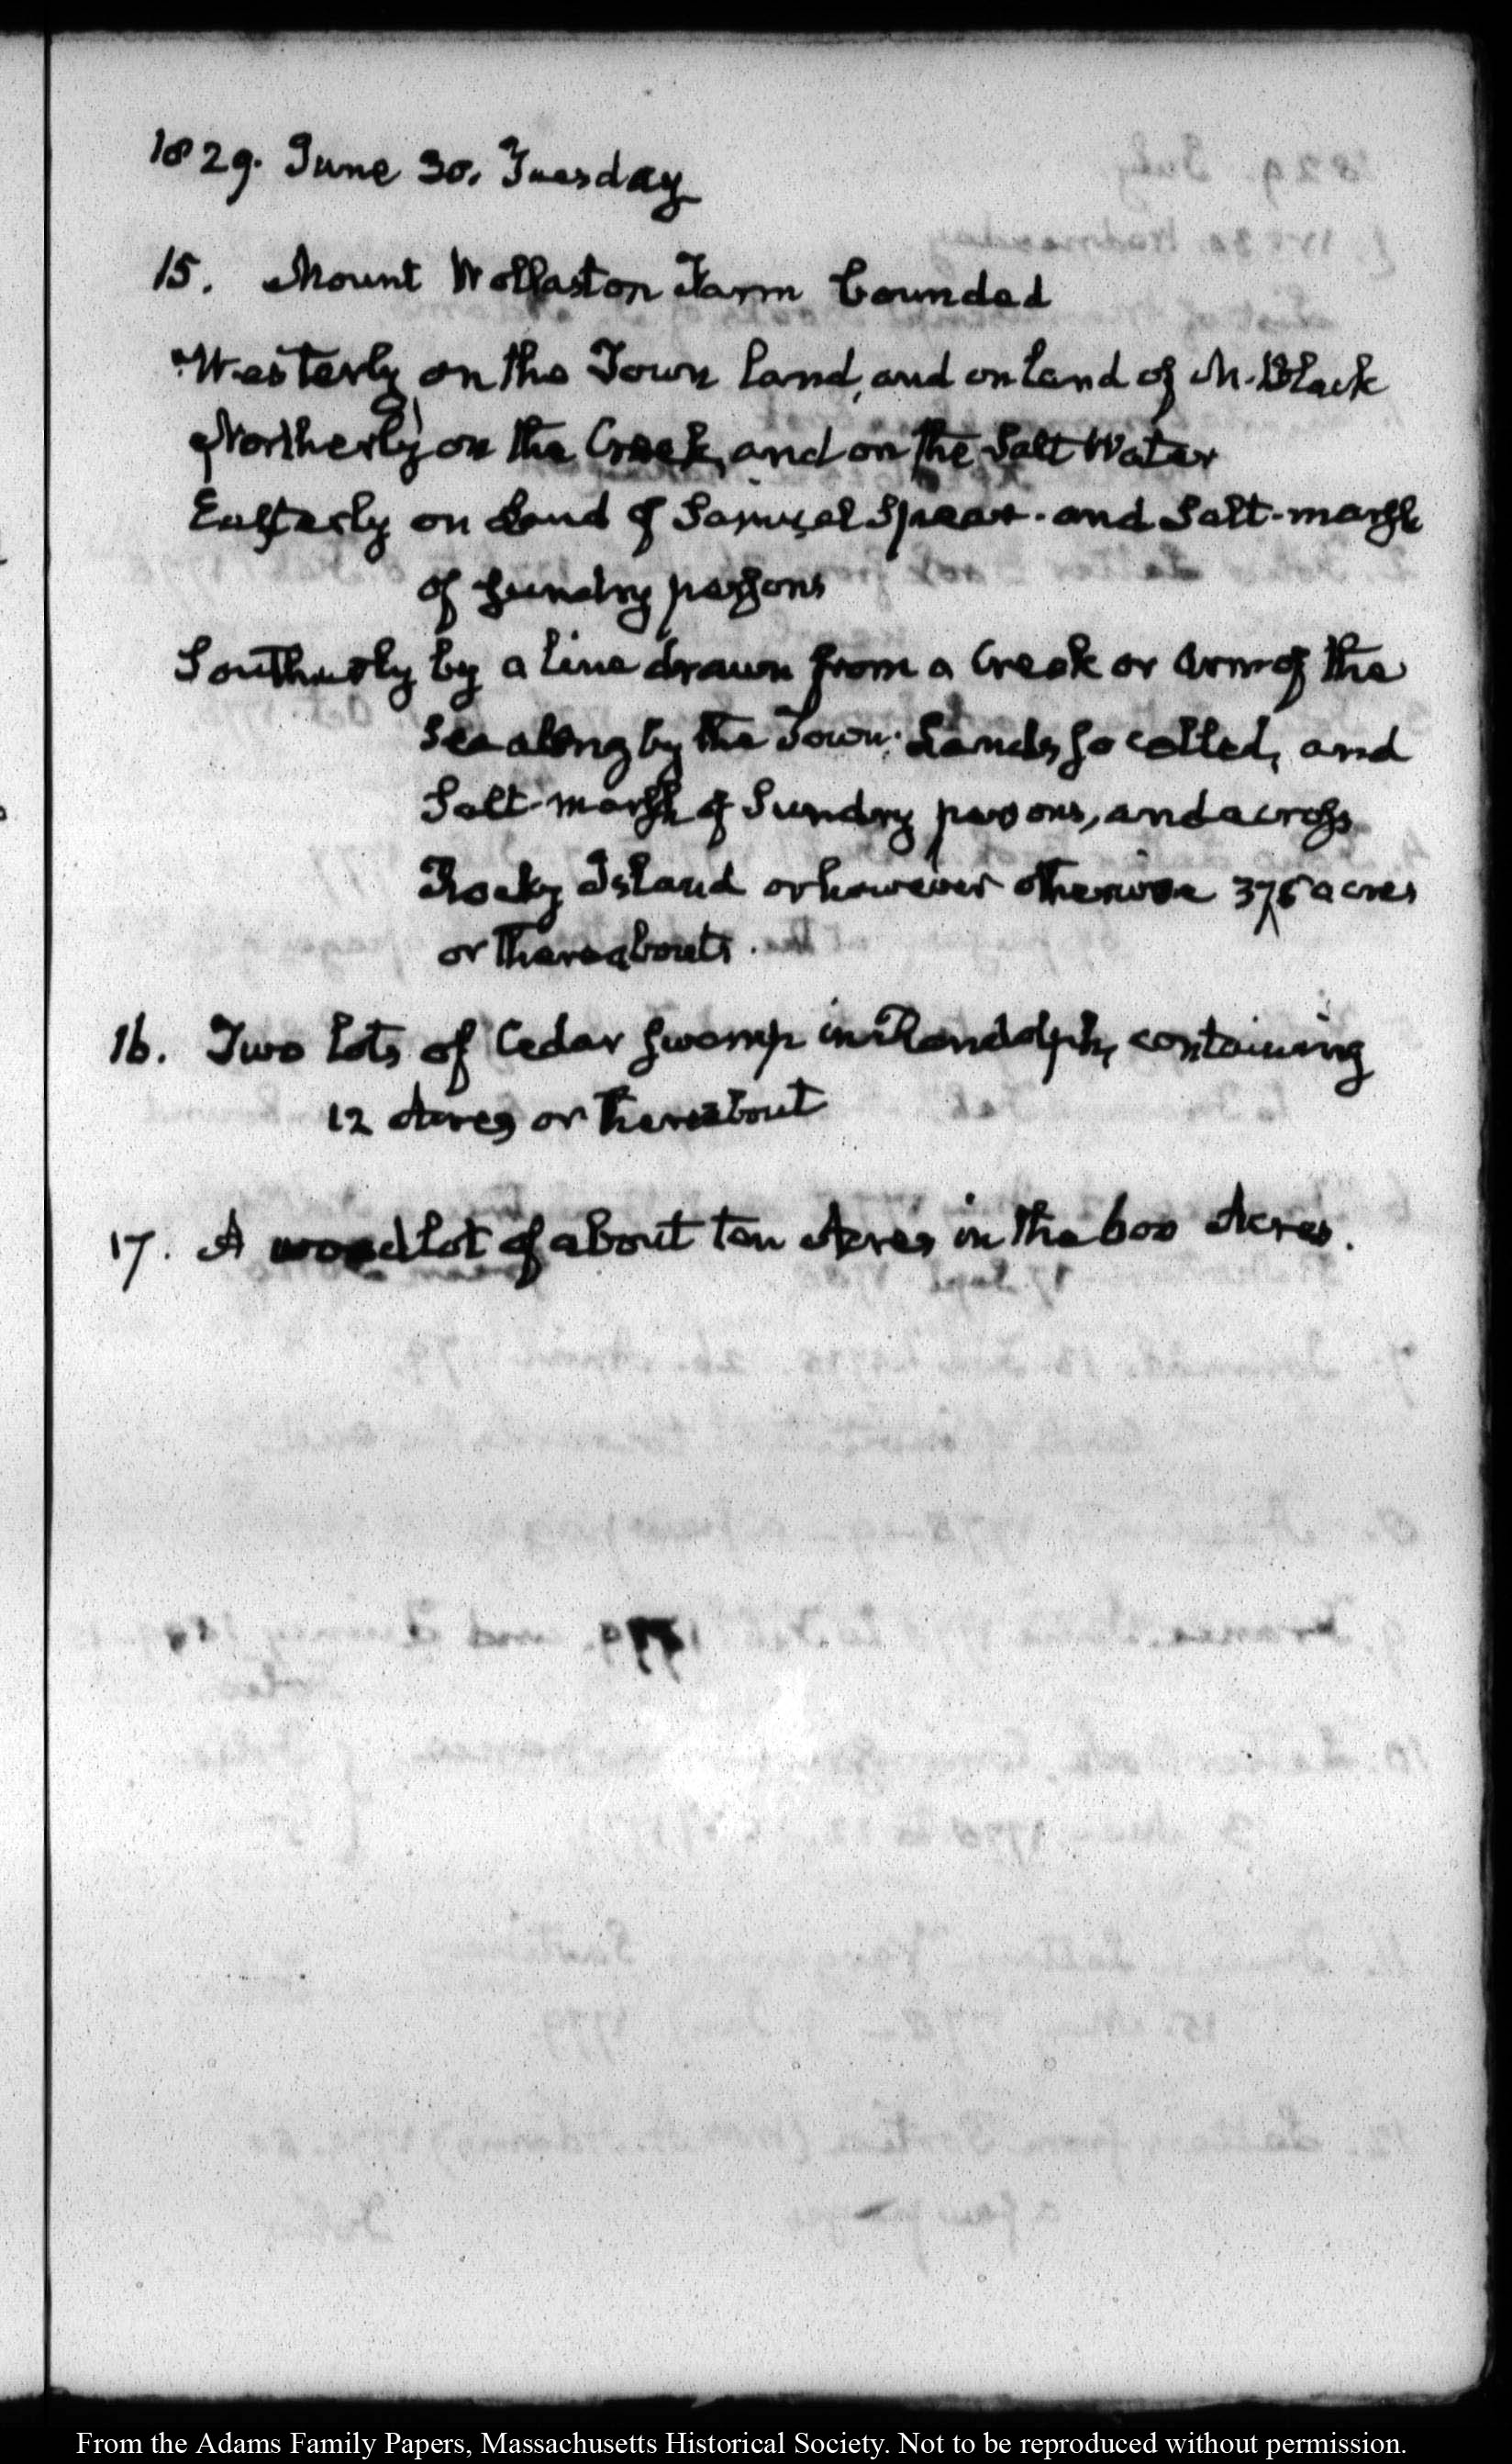 1829. June 30. Tuesday
15. Mount Wollaston Farm bounded
Westerly on the Town land, and on land of M. Black
Northerly on the Creek, and on the Salt Water
Easterly on Land of Samuel Spear. and Salt-marsh
of sundry persons
Southerly by a line drawn from a Creek or arm of the
Sea along by the Town. Lands so called, and
Salt-marsh of Sundry persons, and across
Rocky Island or however otherwise 375 acres
or thereabouts.
16. Two lots of Cedar Swamp in Randolph, containing
12 Acres or thereabout
17. A wood lot of about ten Acres in the 600 Acres.
From the Adams Family Papers, Massachusetts Historical Society. Not to be reproduced without permission.